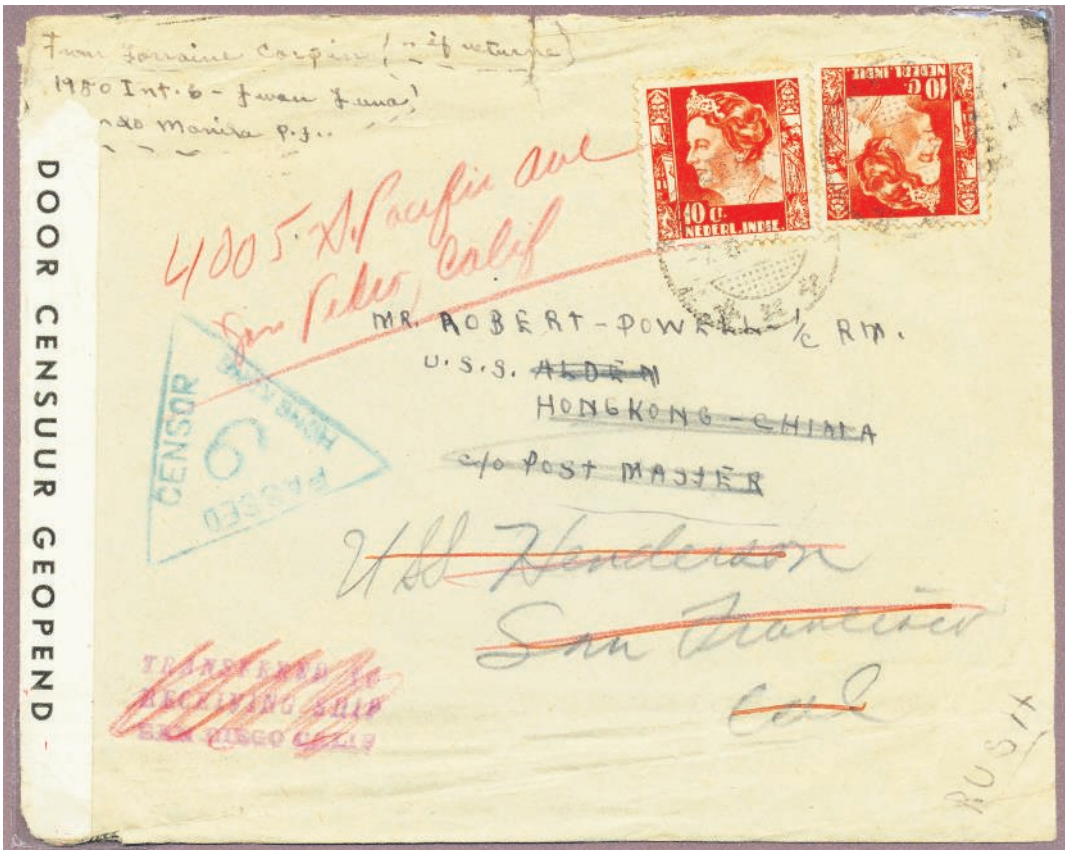 From Lorraine Carpin (- if returne)
1980 Int. 6 - Juan Luna,
Manira P.I..
DOOR CENSUUR GEOPEND
10 C.
NEDERL. INDIE.
10 C.
NEDERL. INDIE.
4005. S. Pacific Ave
San Pedro, Calif
MR. ROBERT-POWELL 1/c RM.
U.S.S. ALDEN
HONGKONG-CHINA
c/o POST MASTER
PASSED
CENSOR
6
HONG KONG
USS Henderson
San Francisco
Cal
TRANSFERRED TO
RECEIVING SHIP
SAN DIEGO CALIF